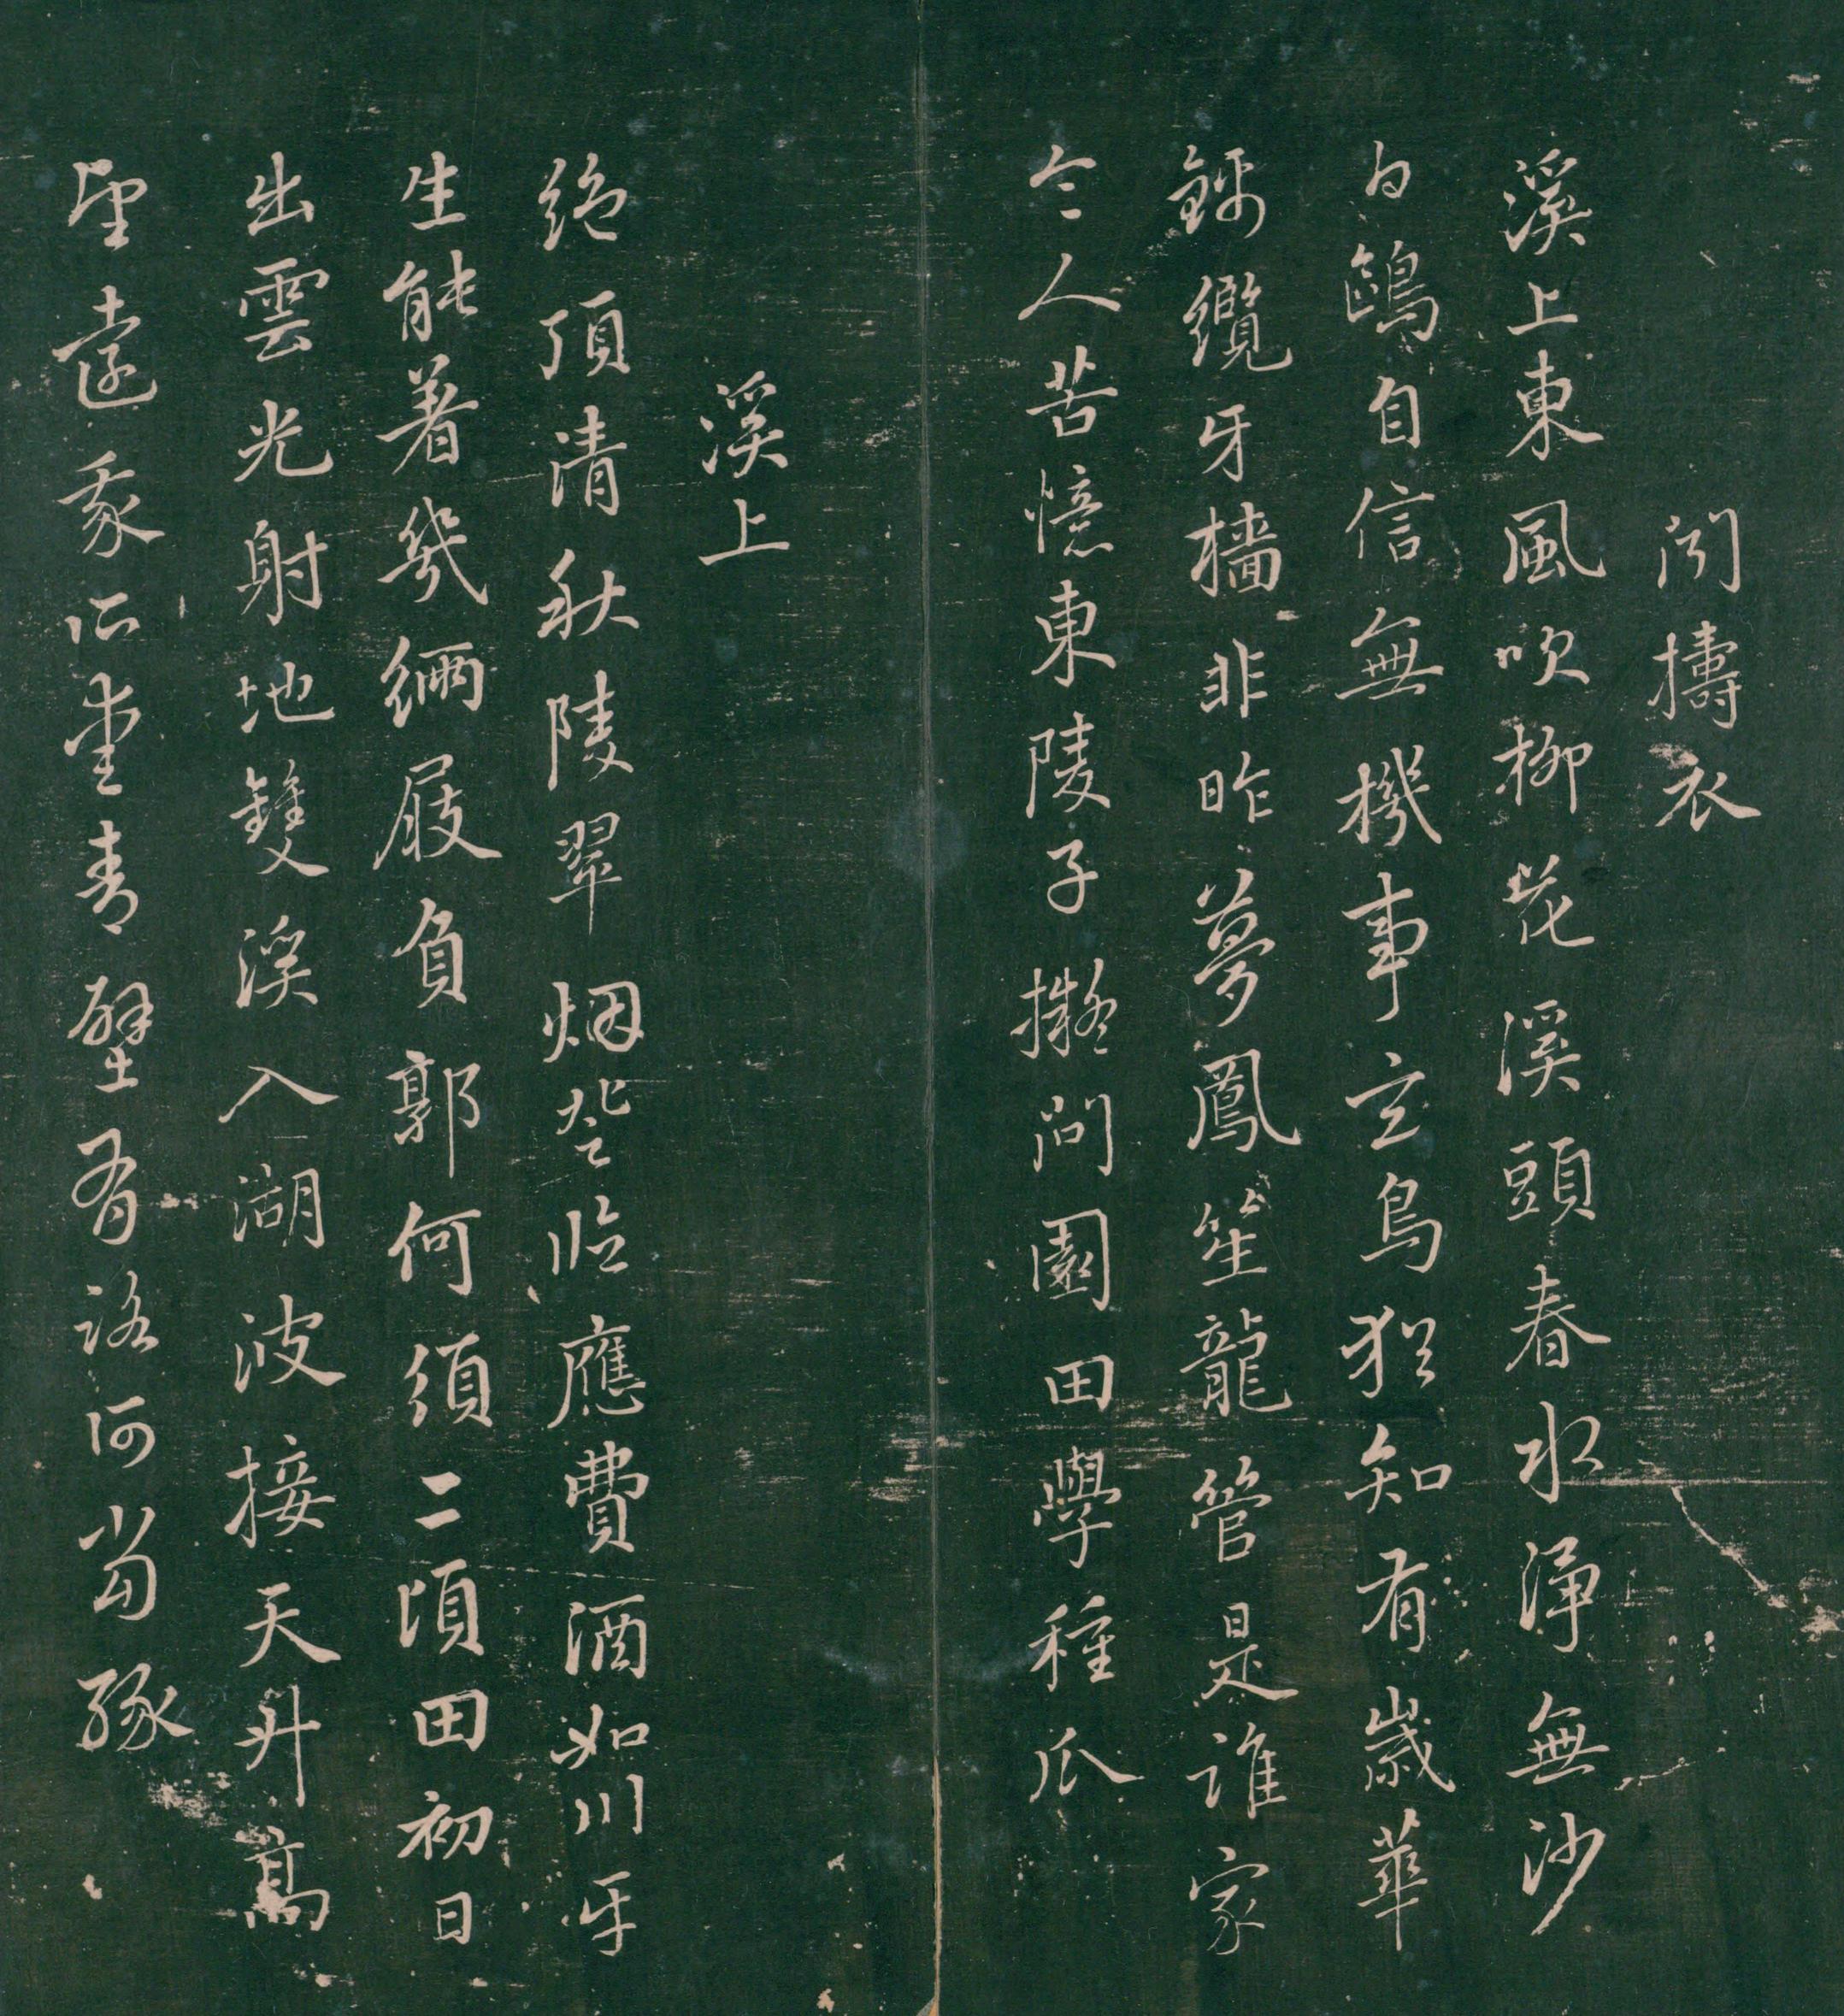 聞擣衣
溪上東風吹柳花溪頭春水淨無沙
白鷗自信無機事玄鳥猶知有歲華
錦纜牙檣非昨夢鳳笙龍管是誰家
令人苦憶東陵子擬問園田學種瓜
溪上
絕頂清秋陵翠烟登臨應費酒如川平
生能著幾緉屐負郭何須二頃田初日
出雲光射地雙溪入湖波接天升高
望遠我所愛青壁有路何當緣